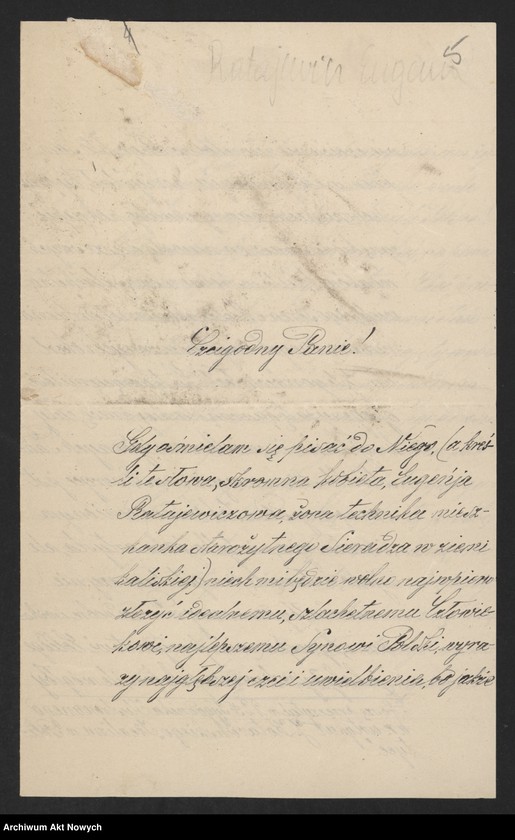 4
5
Ratajewicz Eugenia
Czcigodny Panie!
Gdy ośmielam się pisać do Niego, (a kreś-
li te słowa, skromna kobieta, Eugenja
Ratajewiczowa, żona technika miesz-
kanka starożytnego Sieradza w ziemi
kaliskiej) niech mi będzie wolno najpierw
złożyć idealnemu, szlachetnemu Człowie-
kowi, najlepszemu Synowi Polski, wyra-
zy najgłębszej czci i uwielbienia, bo jakże
Archiwum Akt Nowych